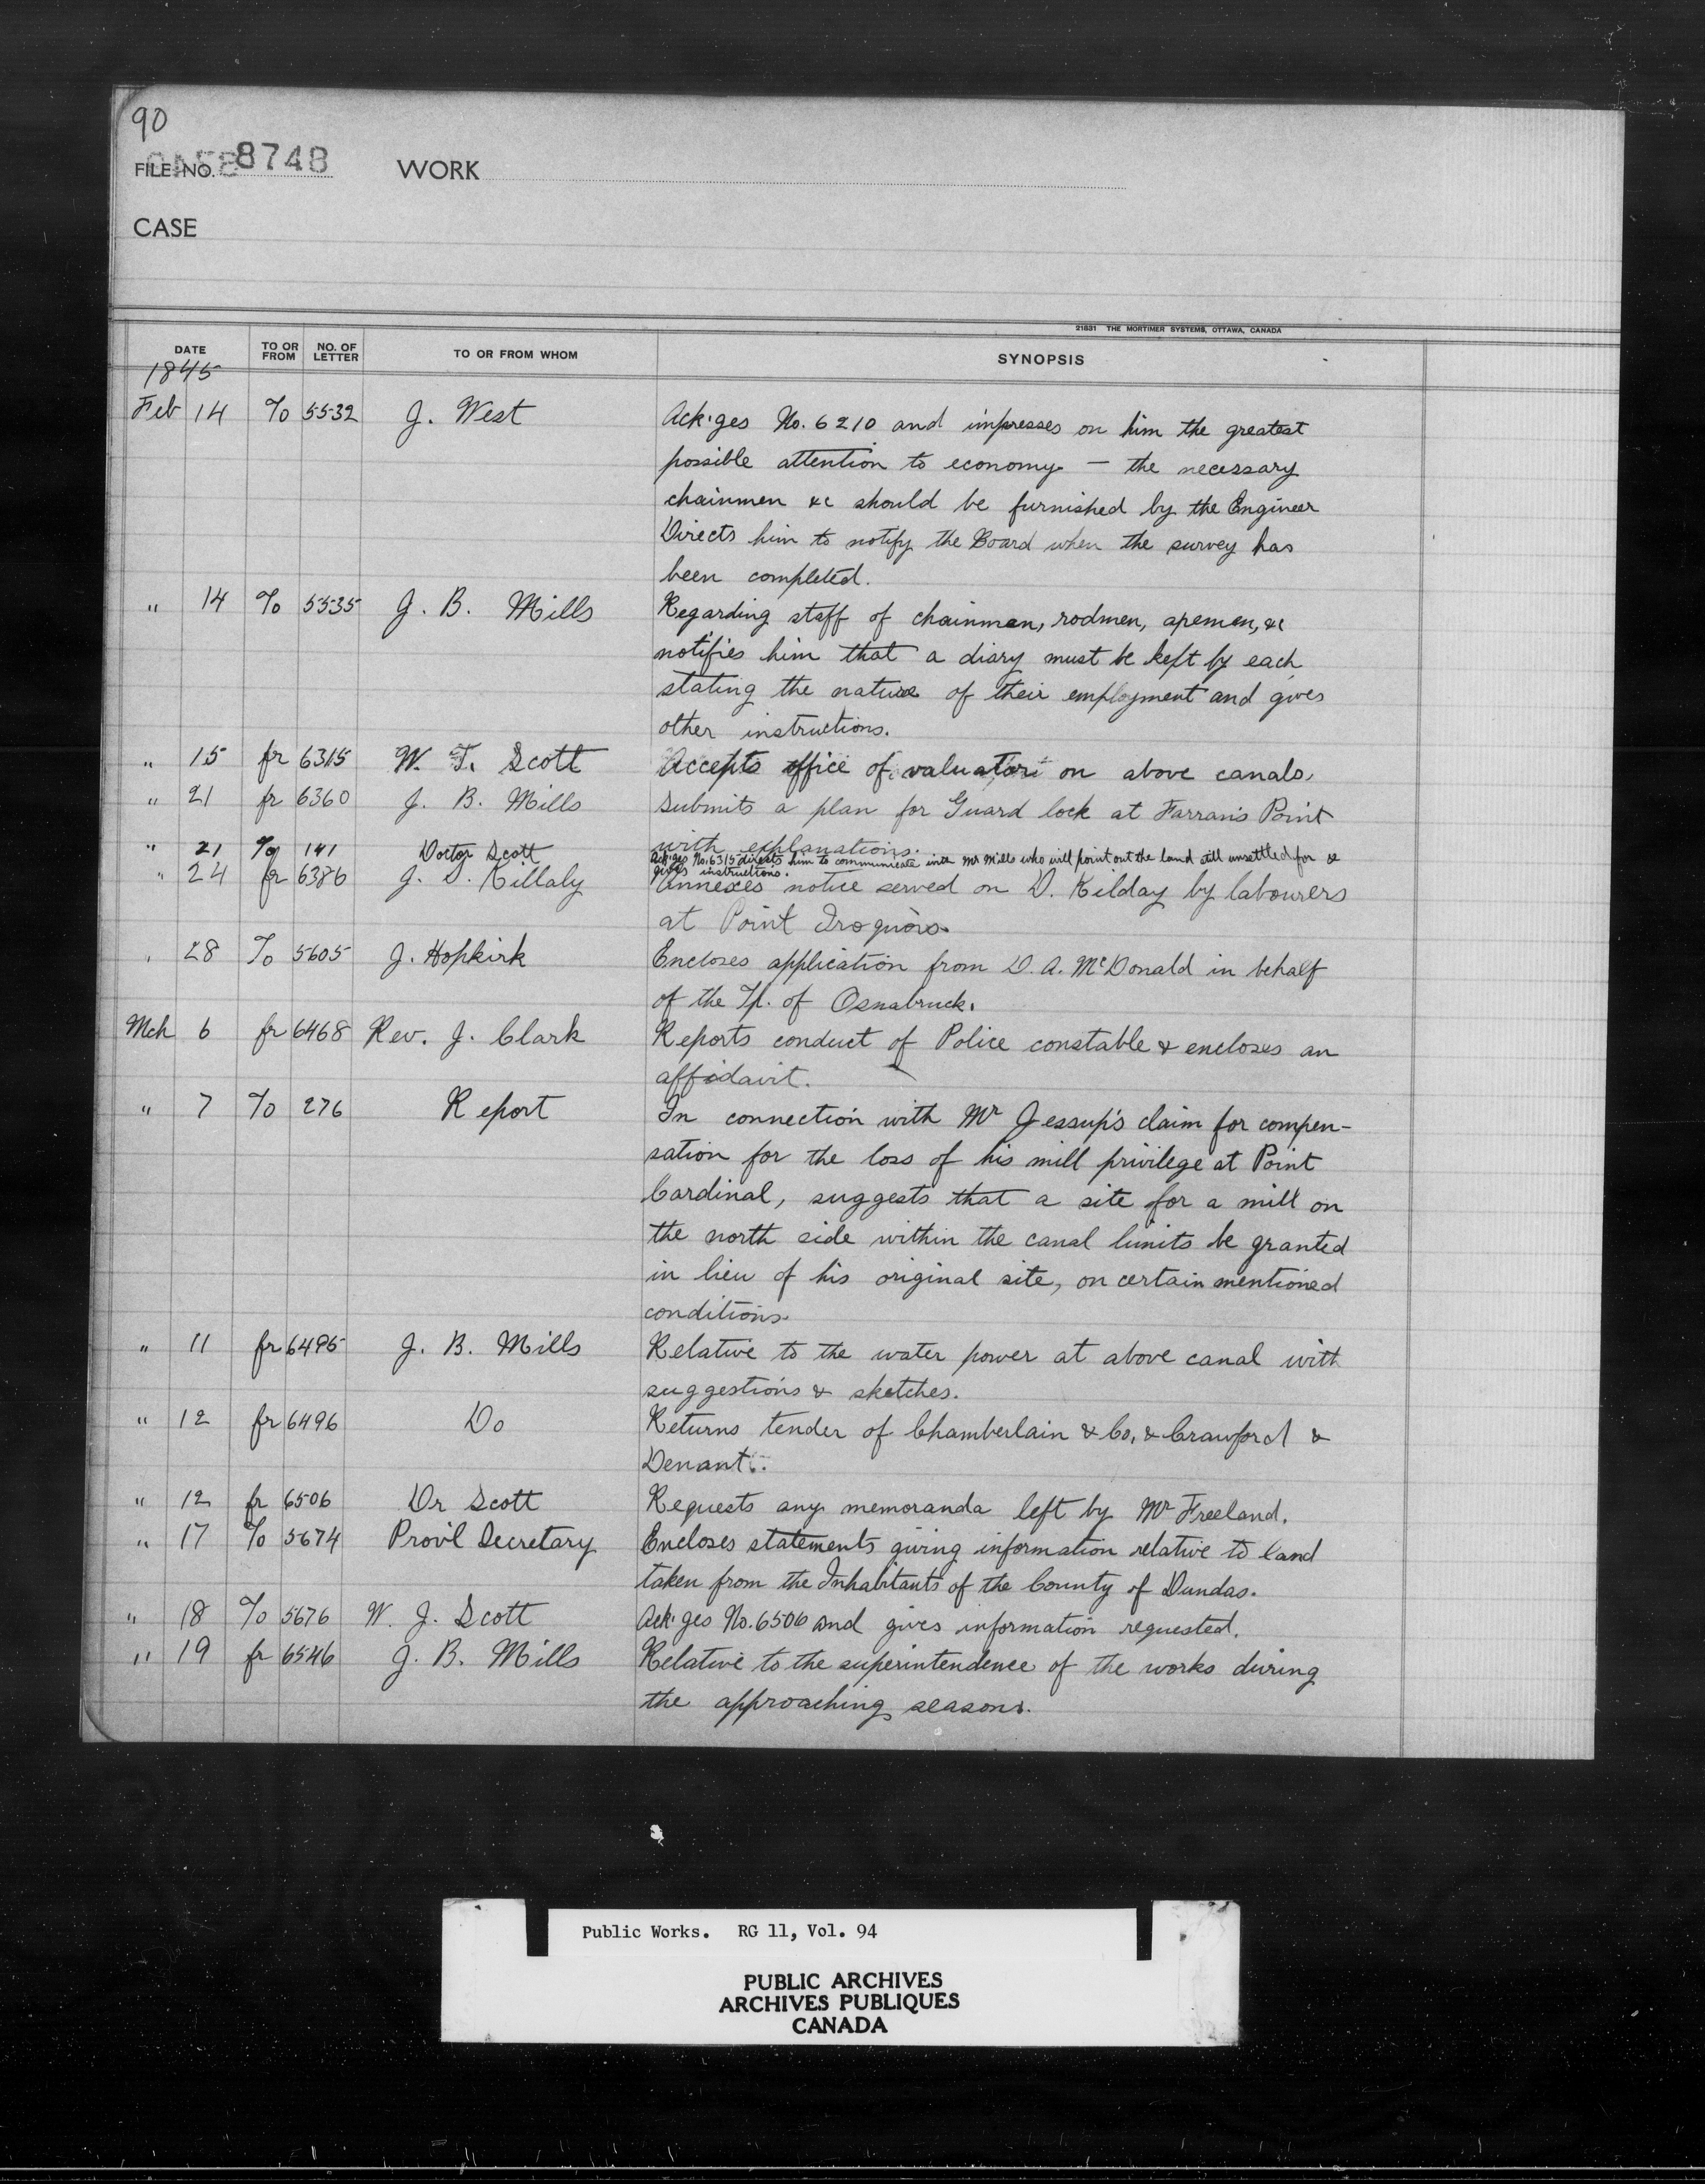 90
FILE NO. 8748 WORK
CASE
21831 THE MORTIMER SYSTEMS, OTTAWA, CANADA
DATE TO OR FROM NO. OF LETTER TO OR FROM WHOM SYNOPSIS
1845
Feb 14 To 5532 J. West Ack'ges No. 6210 and impresses on him the greatest
possible attention to economy - the necessary
chainmen &c should be furnished by the Engineer
Directs him to notify the Board when the survey has
been completed.
" 14 To 5535 J. B. Mills Regarding staff of chainmen, rodmen, axemen, &c
notifies him that a diary must be kept by each
stating the nature of their employment and gives
other instructions.
" 15 fr 6315 W. J. Scott Accepts office of valuator on above canals.
" 21 fr 6360 J. B. Mills Submits a plan for Guard lock at Farran's Point
with explanations.
" 21 To 141 Doctor Scott Ack'ges No. 6315 directs him to communicate with Mr Mills who will point out the land still unsettled for &
gives instructions.
" 24 fr 6386 J. S. Killaly Annexes notice served on D. Kilday by labourers
at Point Iroquois.
" 28 To 5605 J. Hopkirk Encloses application from D. A. McDonald in behalf
of the Tp. of Osnabruck.
Mch 6 fr 6468 Rev. J. Clark Reports conduct of Police constable & encloses an
affidavit.
" 7 To 276 Report In connection with Mr Jessup's claim for compen-
sation for the loss of his mill privilege at Point
Cardinal, suggests that a site for a mill on
the north side within the canal limits be granted
in lieu of his original site, on certain mentioned
conditions.
" 11 fr 6495 J. B. Mills Relative to the water power at above canal with
suggestions & sketches.
" 12 fr 6496 Do Returns tender of Chamberlain & Co, & Crawford &
Denant.
" 12 fr 6506 Dr Scott Requests any memoranda left by Mr Freeland.
" 17 To 5674 Prov'l Secretary Encloses statements giving information relative to land
taken from the Inhabitants of the County of Dundas.
" 18 To 5676 W. J. Scott Ack'ges No. 6506 and gives information requested.
" 19 fr 6546 J. B. Mills Relative to the superintendence of the works during
the approaching season.
Public Works. RG 11, Vol. 94
PUBLIC ARCHIVES
ARCHIVES PUBLIQUES
CANADA